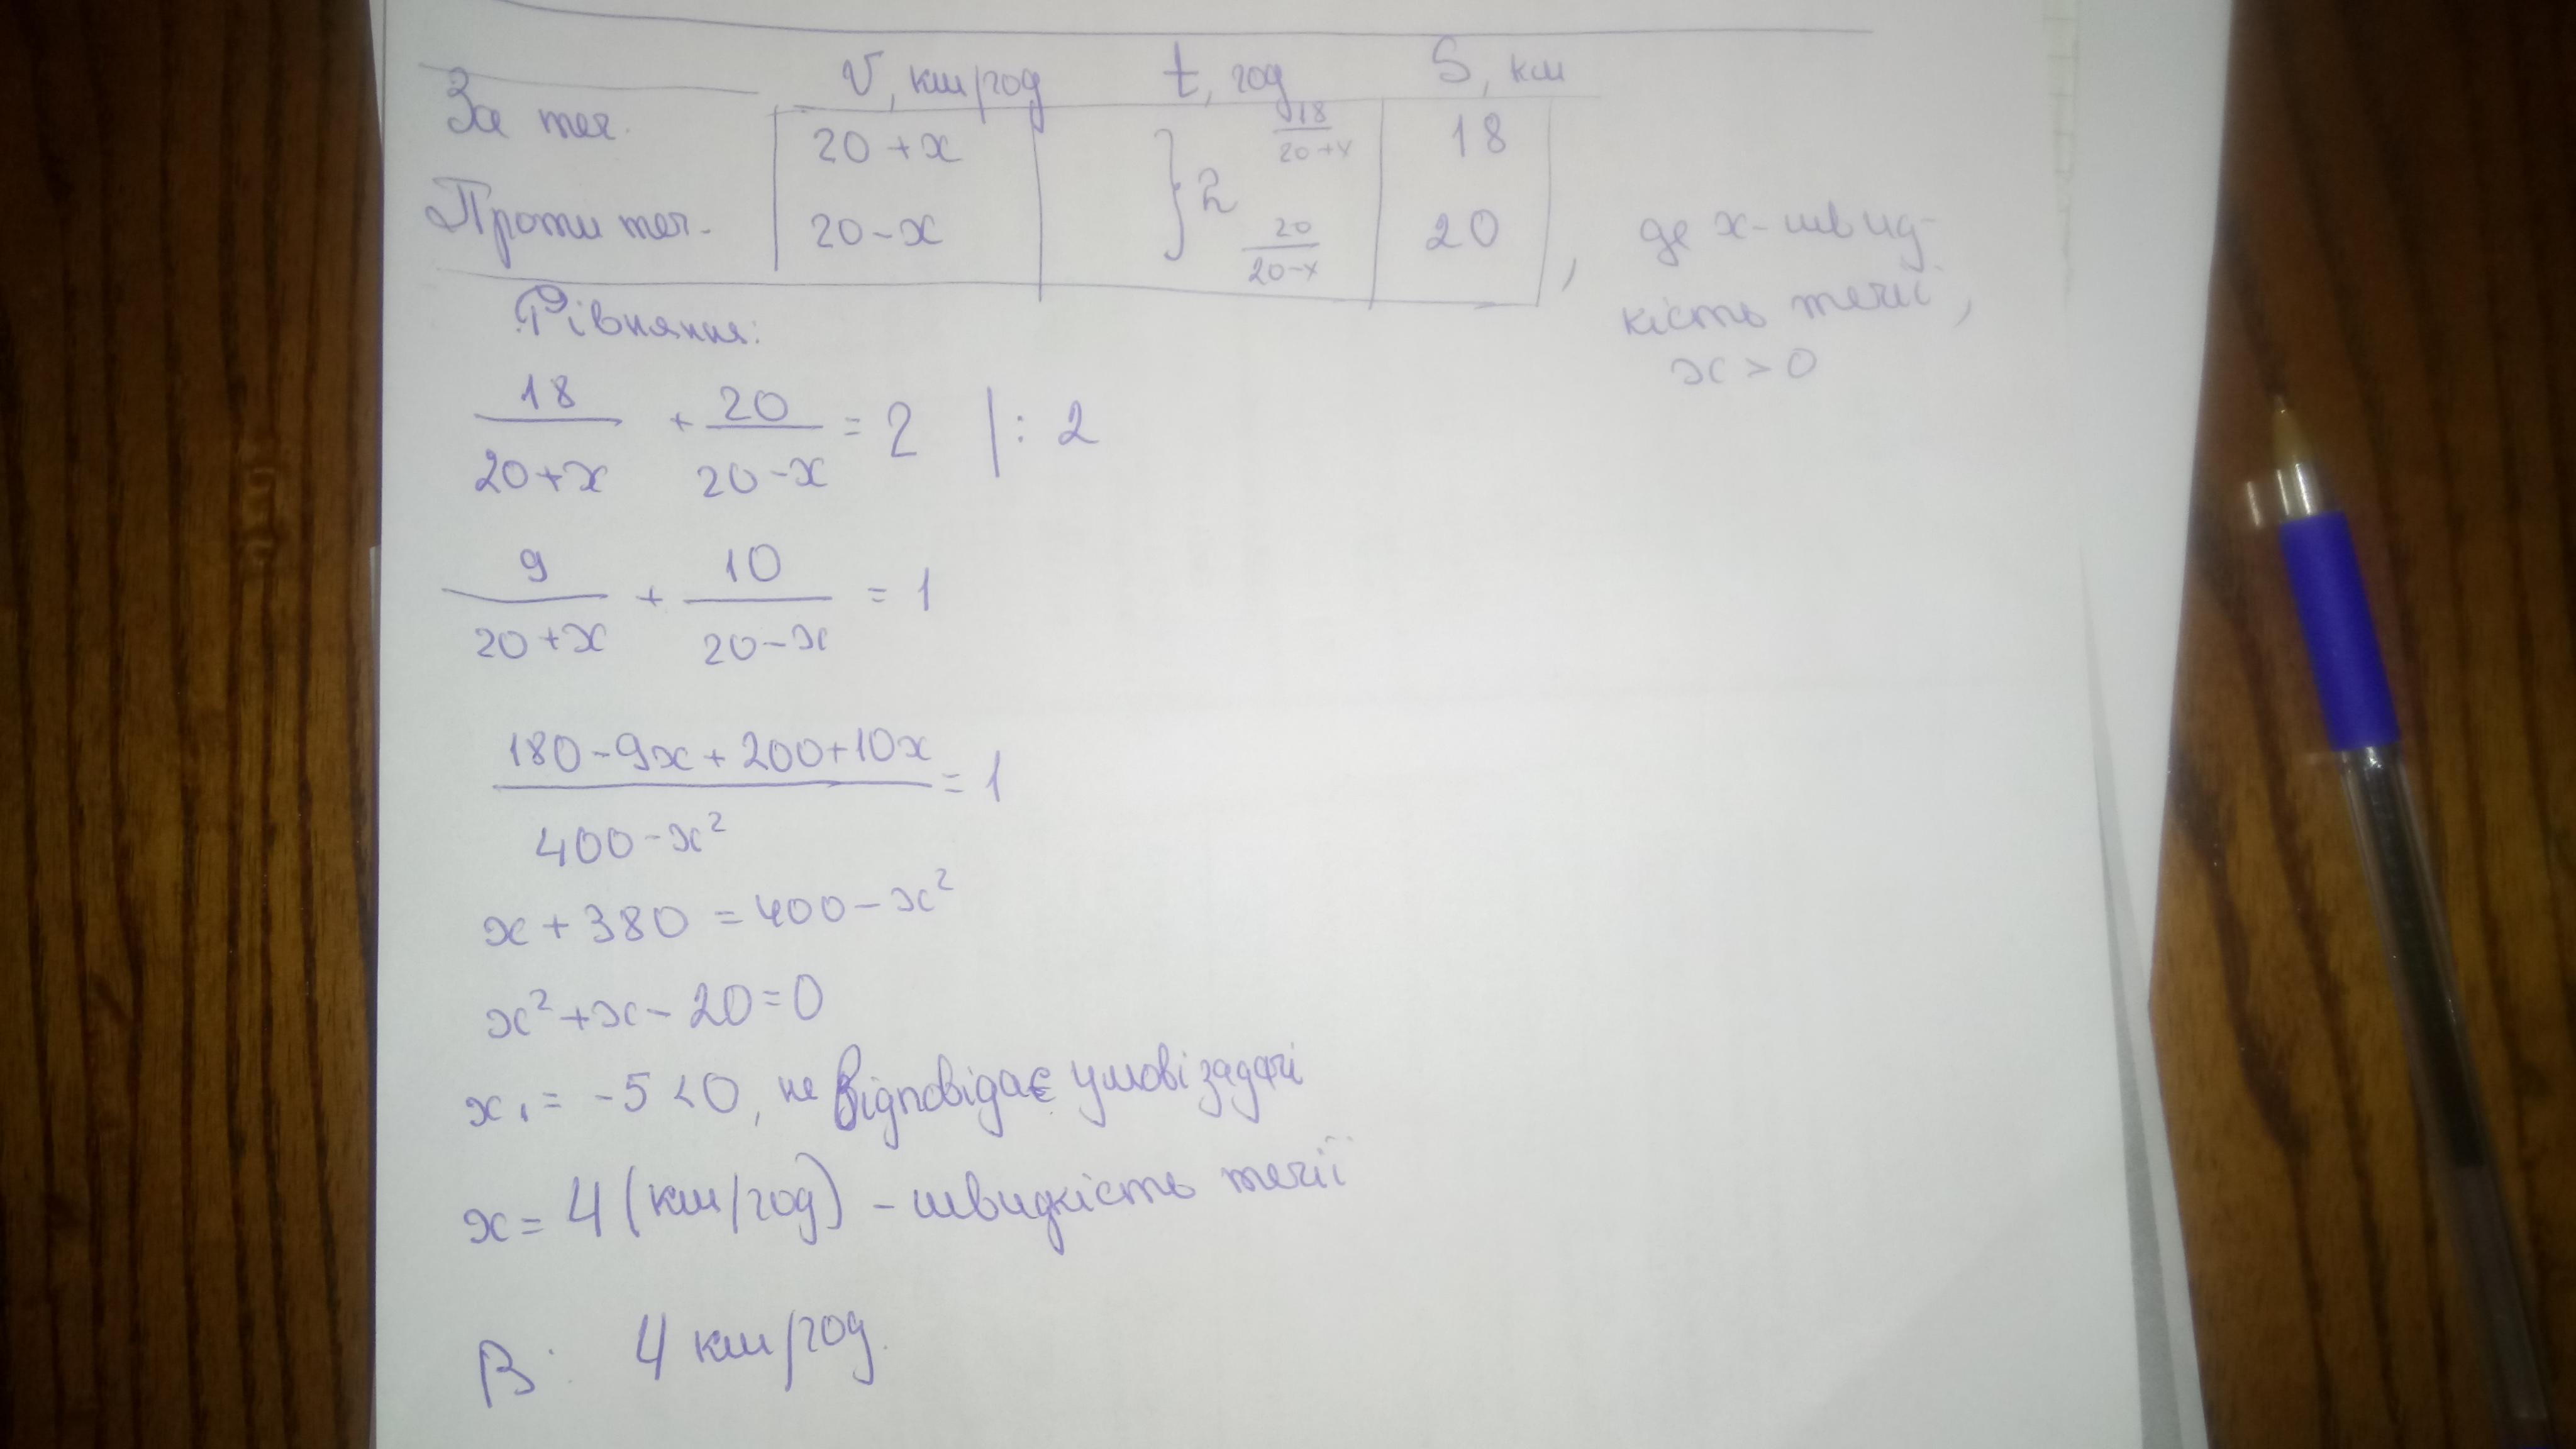 V, км/год t, год S, км
За теч. 20+x 18/(20+x) 18
} 2
Проти теч. 20-x 20/(20-x) 20 , де x - швид-
кість течії,
x > 0
Рівняння:
18/(20+x) + 20/(20-x) = 2 |: 2
9/(20+x) + 10/(20-x) = 1
(180-9x+200+10x)/(400-x²) = 1
x+380 = 400-x²
x²+x-20=0
x₁ = -5 < 0, не відповідає умові задачі
x = 4 (км/год) - швидкість течії
В: 4 км/год.